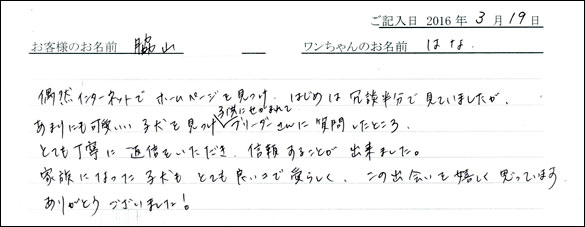 ご記入日 2016 年 3 月 19 日
お客様のお名前 脇山 ワンちゃんのお名前 はな
偶然インターネットで ホームページを見つけ、はじめは冗談半分で見ていましたが、
子供にせがまれて
あまりにも可愛いい子犬を見つけ ブリーダーさんに質問したところ、
とても丁寧に返信をいただき、信頼することが出来ました。
家族になった子犬も とても良いコで愛らしく、この出会いを嬉しく思っています
ありがとうございました！